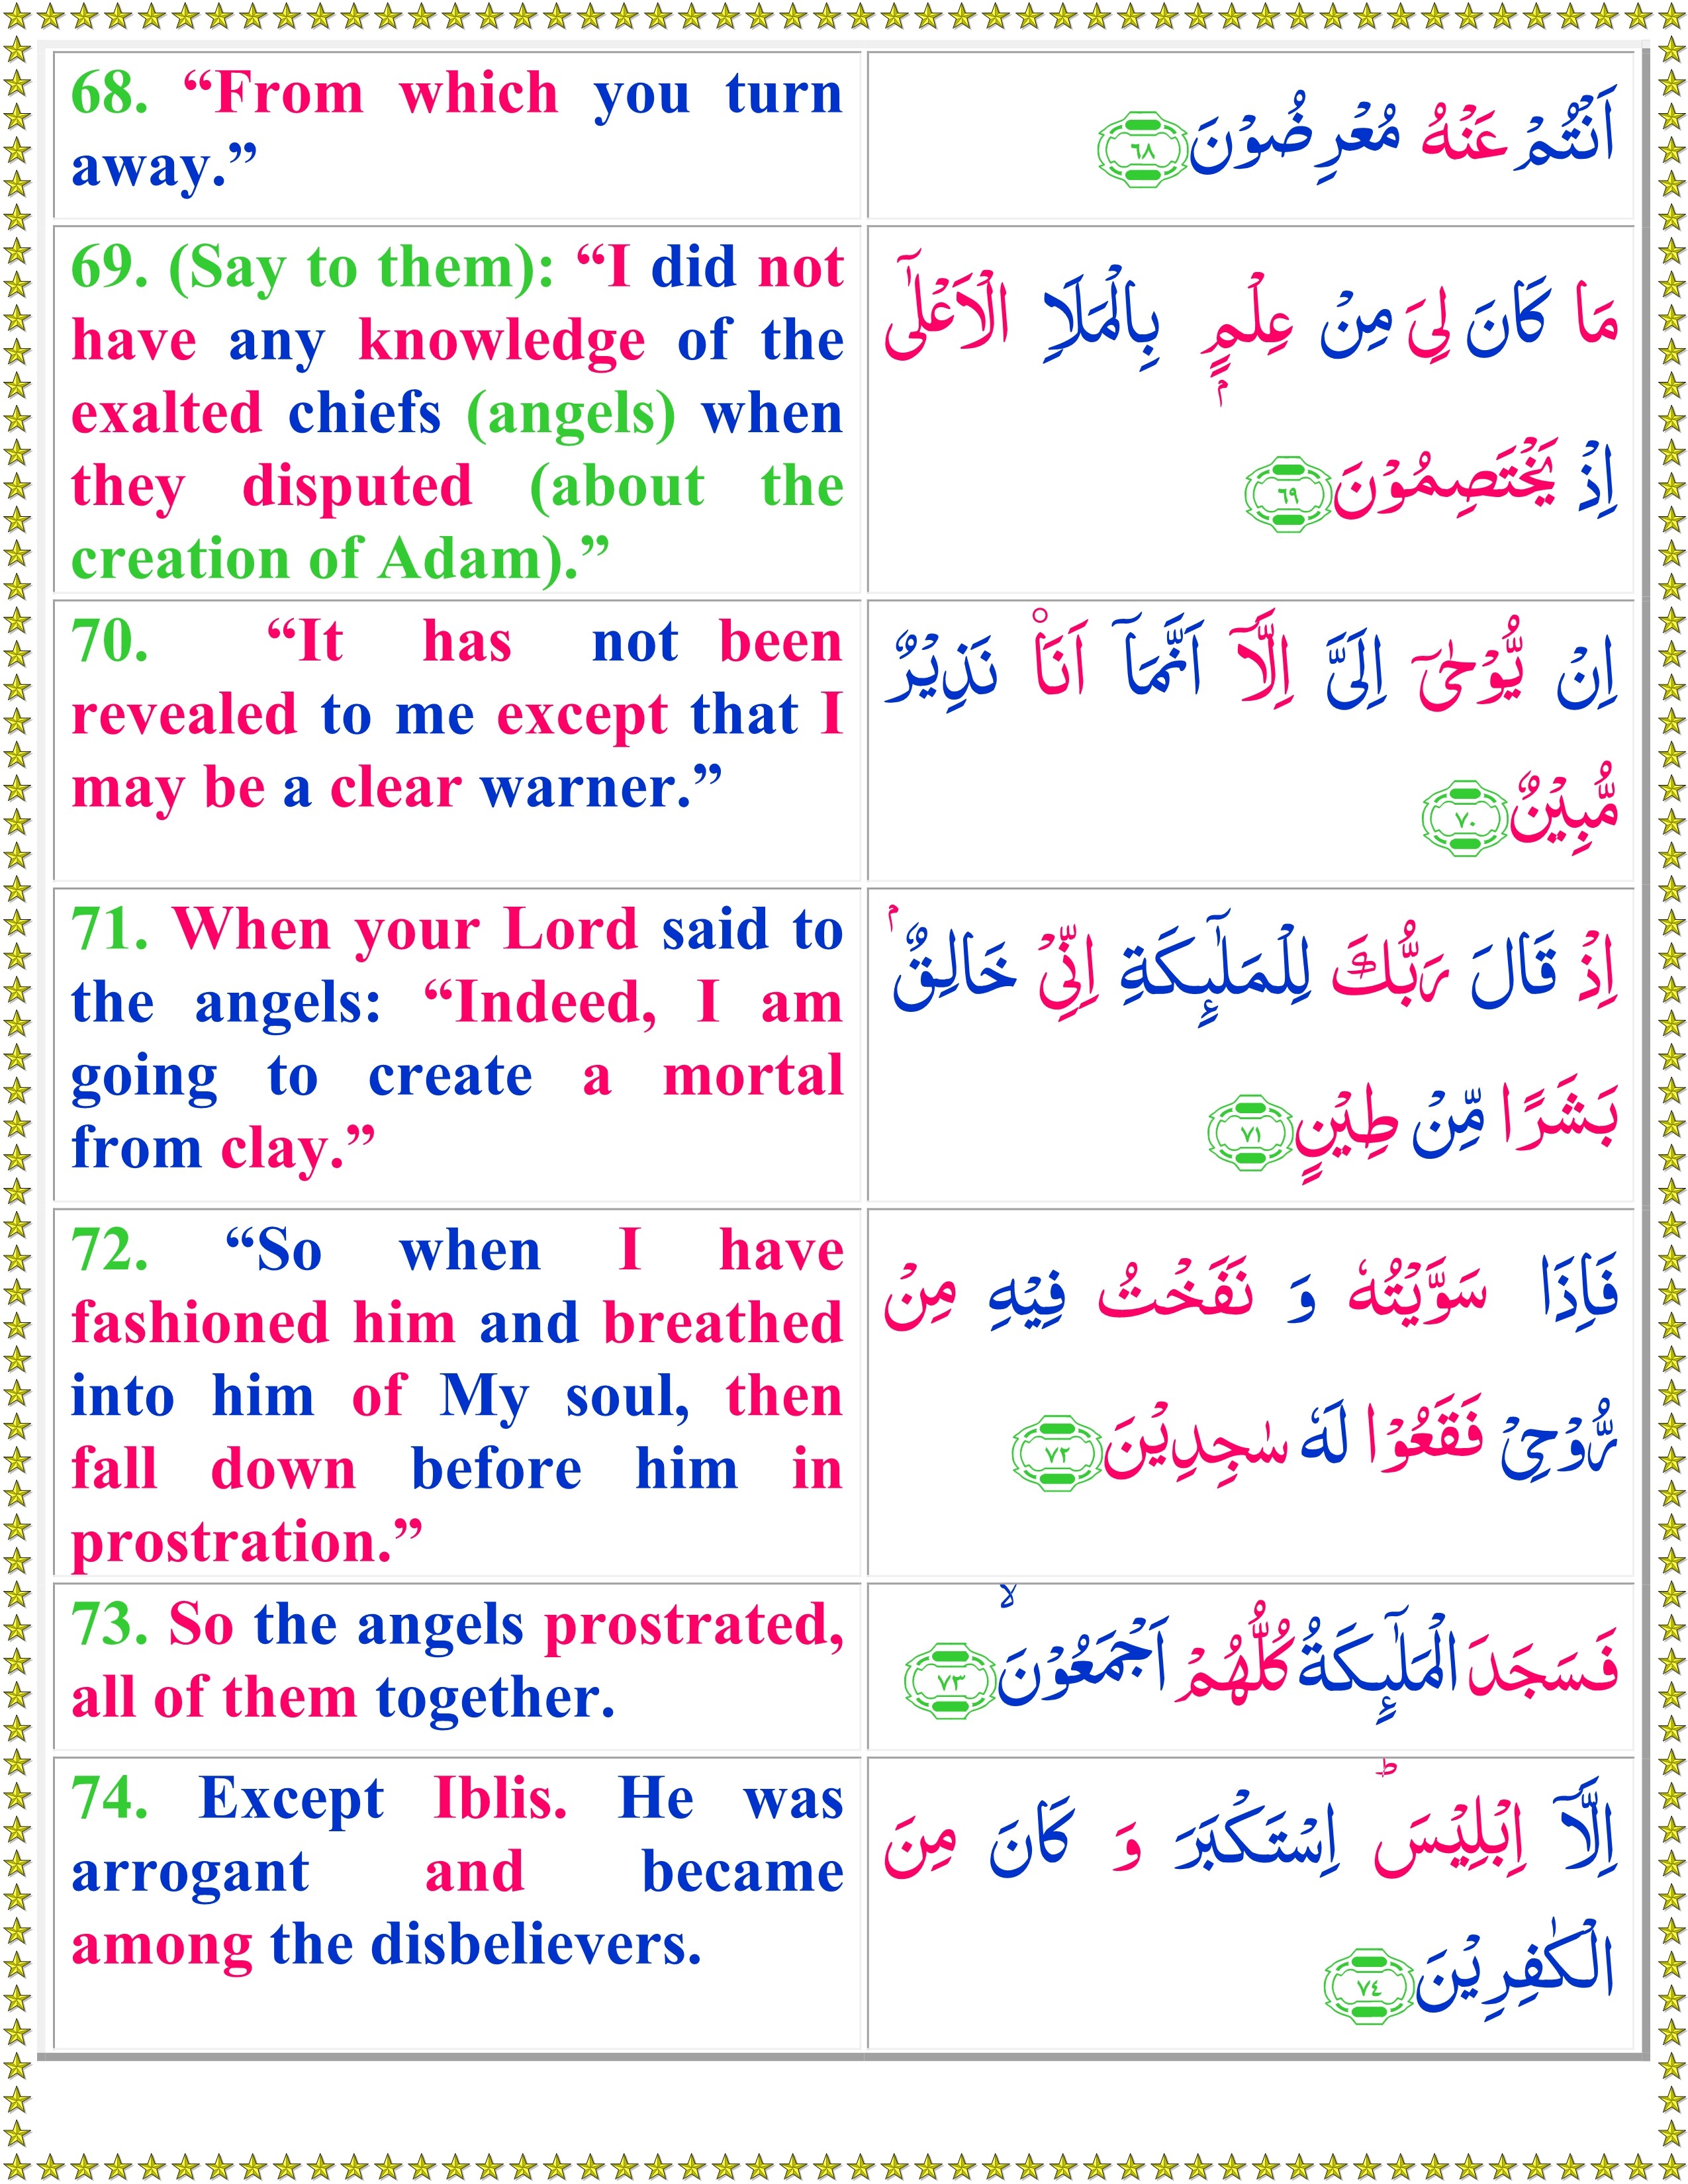 68. “From which you turn
away.”
اَنْتُمْ عَنْهُ مُعْرِضُوْنَ ۶۸
69. (Say to them): “I did not
have any knowledge of the
exalted chiefs (angels) when
they disputed (about the
creation of Adam).”
مَا كَانَ لِیَ مِنْ عِلْمٍۭ بِالْمَلَاِ الْاَعْلٰۤی
اِذْ یَخْتَصِمُوْنَ ۶۹
70. “It has not been
revealed to me except that I
may be a clear warner.”
اِنْ یُّوْحٰۤی اِلَیَّ اِلَّاۤ اَنَّمَاۤ اَنَا۠ نَذِیْرٌ
مُّبِیْنٌ ۷۰
71. When your Lord said to
the angels: “Indeed, I am
going to create a mortal
from clay.”
اِذْ قَالَ رَبُّكَ لِلْمَلٰٓىِٕكَةِ اِنِّیْ خَالِقٌۢ
بَشَرًا مِّنْ طِیْنٍ ۷۱
72. “So when I have
fashioned him and breathed
into him of My soul, then
fall down before him in
prostration.”
فَاِذَا سَوَّیْتُهٗ وَ نَفَخْتُ فِیْهِ مِنْ
رُّوْحِیْ فَقَعُوْا لَهٗ سٰجِدِیْنَ ۷۲
73. So the angels prostrated,
all of them together.
فَسَجَدَ الْمَلٰٓىِٕكَةُ كُلُّهُمْ اَجْمَعُوْنَۙ ۷۳
74. Except Iblis. He was
arrogant and became
among the disbelievers.
اِلَّاۤ اِبْلِیْسَؕ اِسْتَكْبَرَ وَ كَانَ مِنَ
الْكٰفِرِیْنَ ۷٤